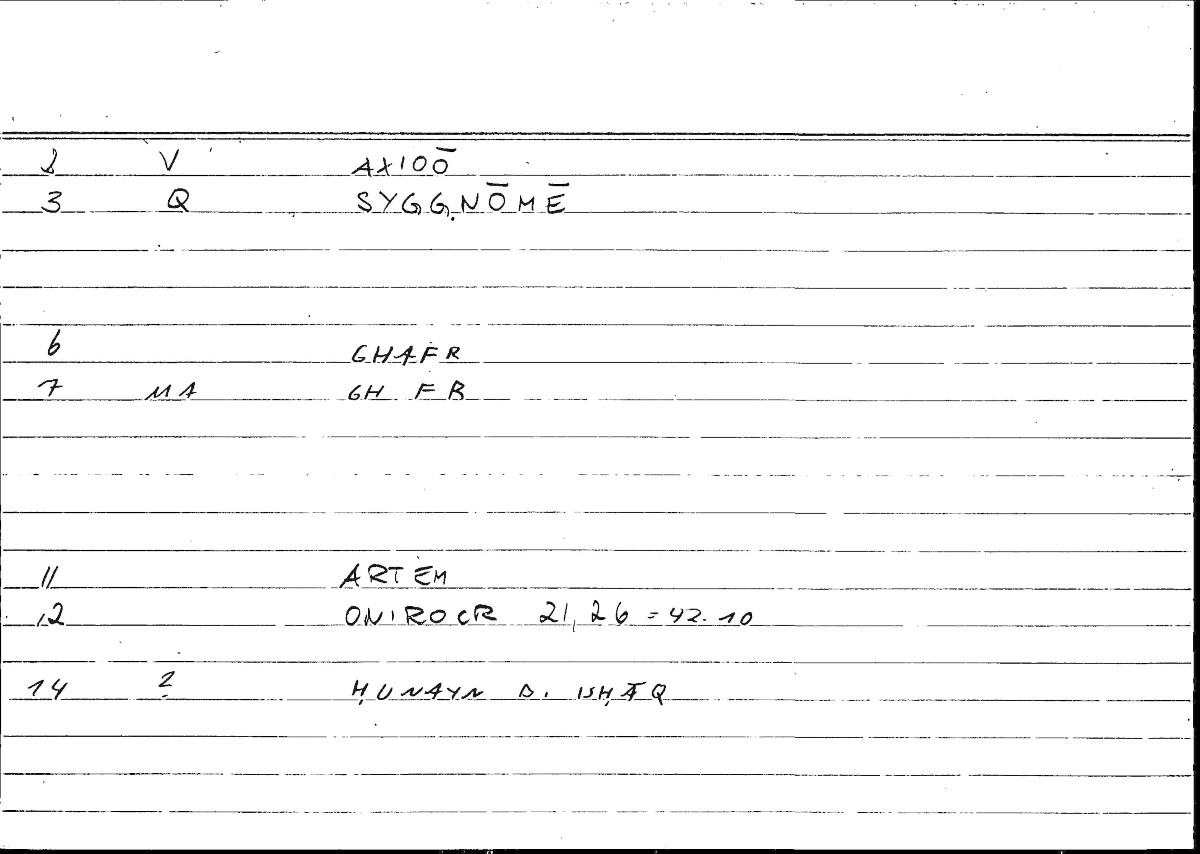 2 V AXIOŌ
3 Q SYGGNŌMĒ
6 GHAFR
7 MA GH FR
11 ARTEM
12 ONIROCR 21,26 = 42.10
14 2 ḤUNAYN B. ISḤĀQ